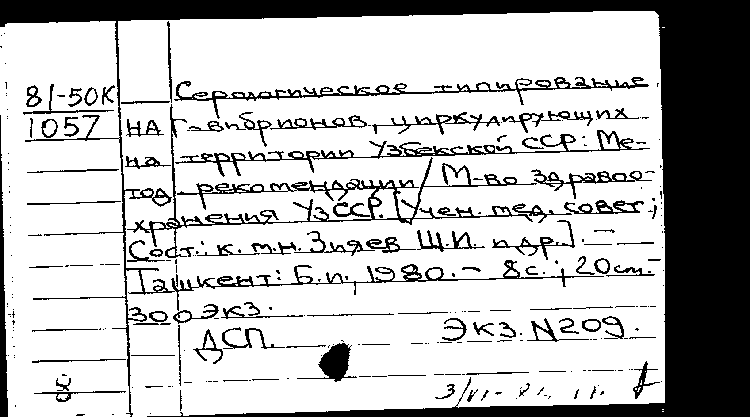 Серологическое типирование
81-50К
1057
НАГ-вибрионов, циркулирующих
на территории Узбекской ССР: Ме-
тод. рекомендации / М-во здраво-
хранения УзССР. [Учен. мед. совет;
Сост.: к.м.н. Зияев Ш.И. и др.]. -
Ташкент: Б.и., 1980. - 8с.; 20см. -
300 экз.
ДСП. Экз. N209.